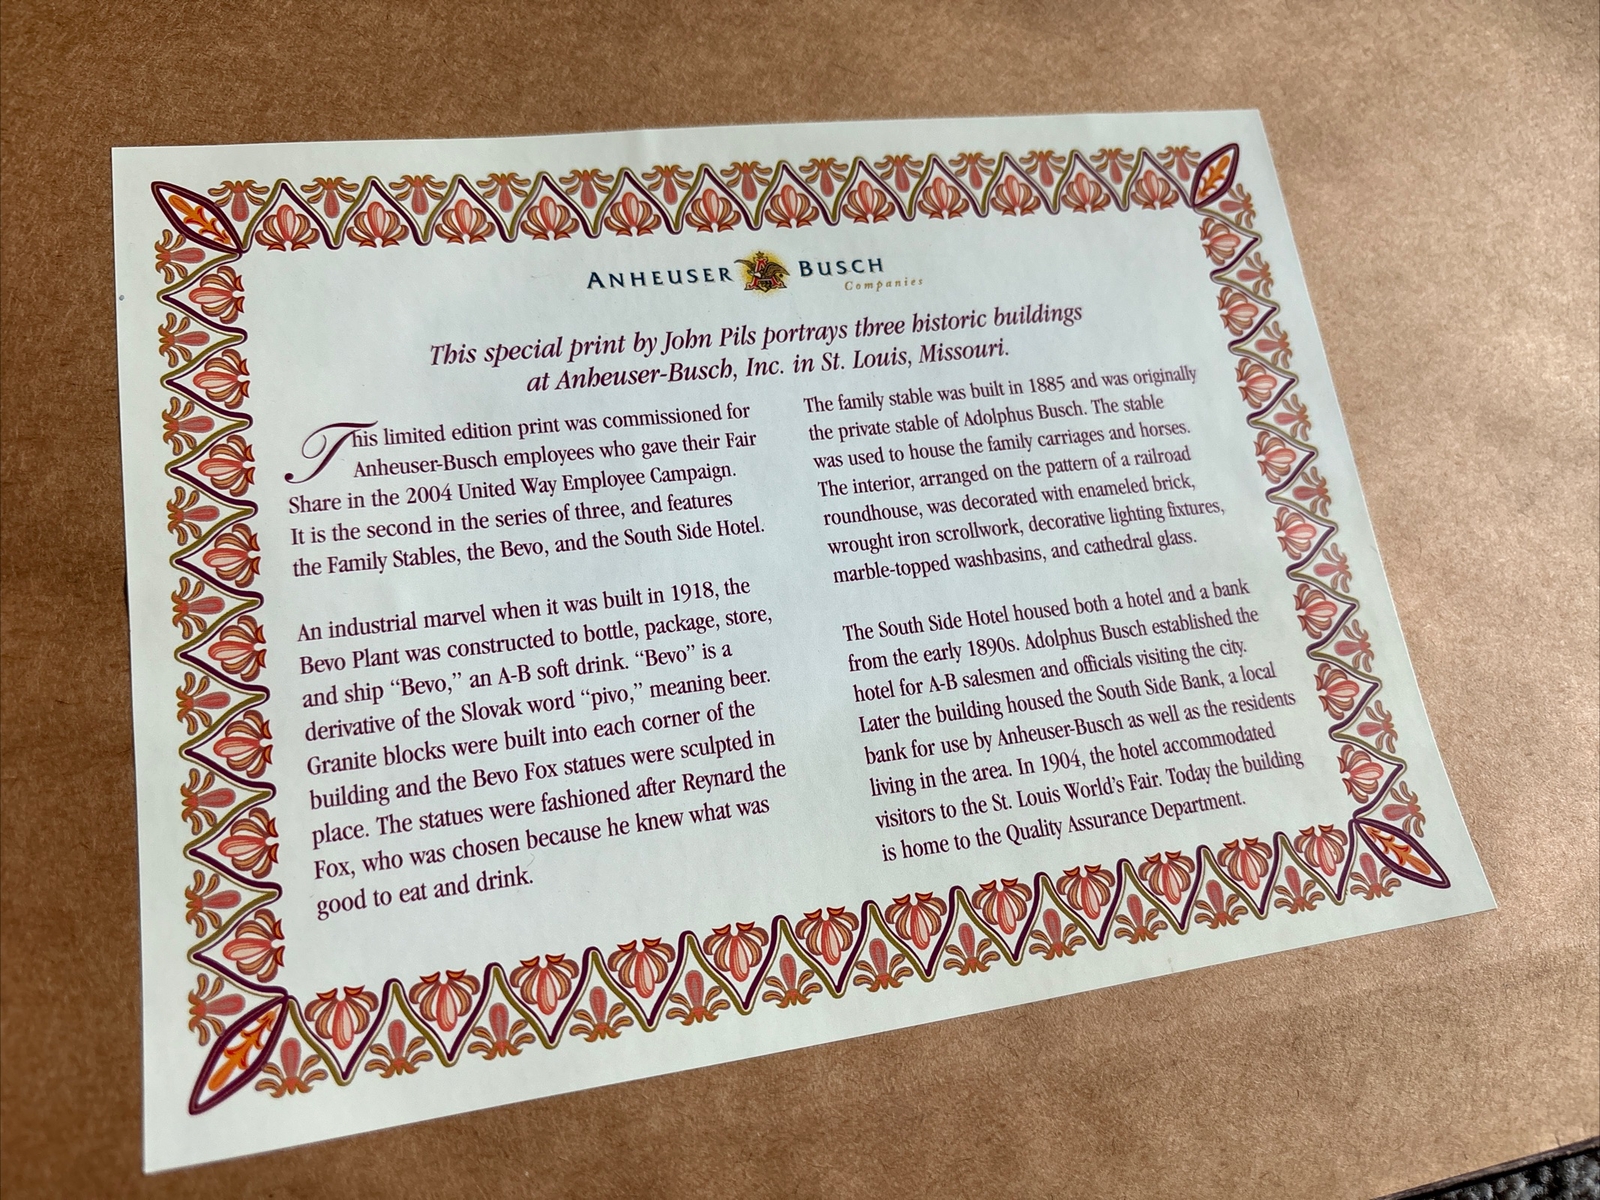 ANHEUSER BUSCH
Companies
This special print by John Pils portrays three historic buildings
at Anheuser-Busch, Inc. in St. Louis, Missouri.
This limited edition print was commissioned for
Anheuser-Busch employees who gave their Fair
Share in the 2004 United Way Employee Campaign.
It is the second in the series of three, and features
the Family Stables, the Bevo, and the South Side Hotel.
An industrial marvel when it was built in 1918, the
Bevo Plant was constructed to bottle, package, store,
and ship “Bevo,” an A-B soft drink. “Bevo” is a
derivative of the Slovak word “pivo,” meaning beer.
Granite blocks were built into each corner of the
building and the Bevo Fox statues were sculpted in
place. The statues were fashioned after Reynard the
Fox, who was chosen because he knew what was
good to eat and drink.
The family stable was built in 1885 and was originally
the private stable of Adolphus Busch. The stable
was used to house the family carriages and horses.
The interior, arranged on the pattern of a railroad
roundhouse, was decorated with enameled brick,
wrought iron scrollwork, decorative lighting fixtures,
marble-topped washbasins, and cathedral glass.
The South Side Hotel housed both a hotel and a bank
from the early 1890s. Adolphus Busch established the
hotel for A-B salesmen and officials visiting the city.
Later the building housed the South Side Bank, a local
bank for use by Anheuser-Busch as well as the residents
living in the area. In 1904, the hotel accommodated
visitors to the St. Louis World’s Fair. Today the building
is home to the Quality Assurance Department.